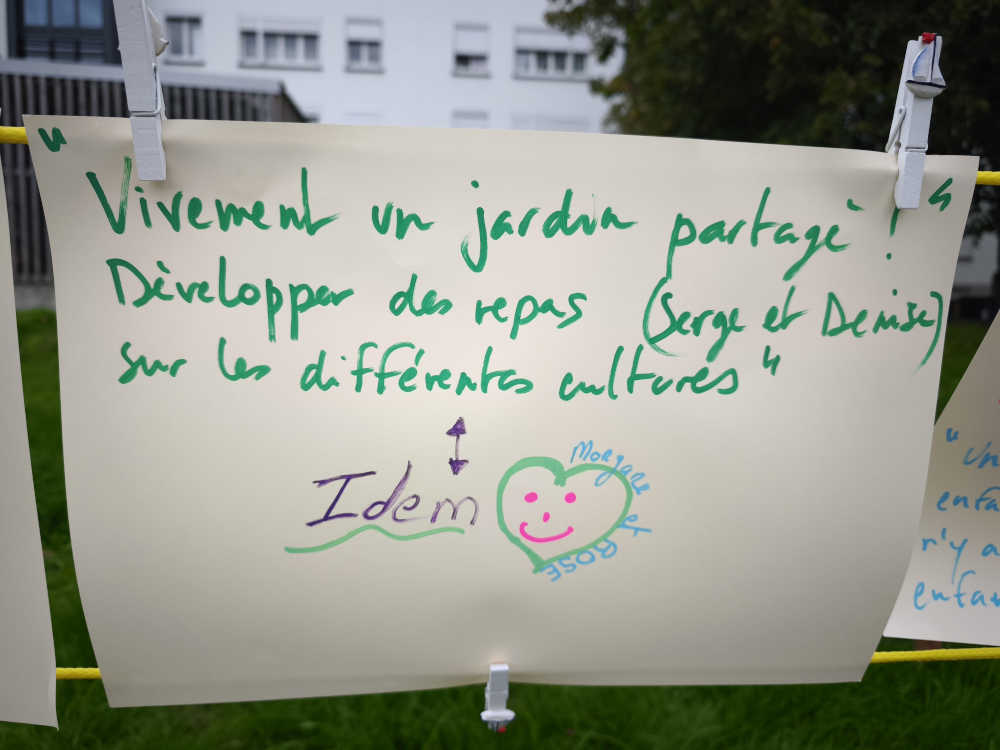 " Vivement un jardin partagé ! "
Développer des repas (Serge et Denise)
sur les différentes cultures "
Idem
Morgane et ROSE
" Un
enfa
n'y a
enfan